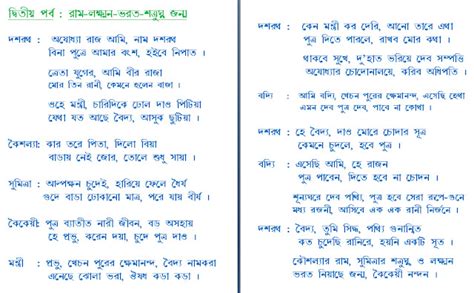 দ্বিতীয় পর্ব : রাম-লক্ষ্মন-ভরত-শত্রুঘ্ন জন্ম
দশরথ : অযোধ্যা রাজ আমি, নাম দশরথ
বিনা পুত্রে আমার বংশ, হইবে নিপাত ।
ত্রেতা যুগের, আমি বীর রাজা
মোর তিন রানী, কেমনে হলেন বাজা ।
ওহে মন্ত্রী, চারিদিকে ঢোল দাও পিটিয়া
যেথা যত আছে বৈদ্য, আসুক ছুটিয়া ।
কৈশল্যা: কার তরে পিতা, দিলো বিয়া
বাড়ায় নেই জোর, তোলে শুধু সায়া ।
সুমিত্রা : অল্পক্ষন চুদেই, হারিয়ে ফেলে ধৈর্য
গুদে বাড়া ঢোকানো মাত্র, পরে যায় বীর্য ।
কৈকেয়ী: পুত্র ব্যাতীত নারী জীবন, বড় অসহায়
হে প্রভু, করেন দয়া, চুদে পুত্র দাও ।
মন্ত্রী : প্রভু, খেচন পুরের ক্ষেমানন্দ, বৈদ্য নামকরা
এনেছে ঝোলা ভরা, ঔষধ কড়া কড়া ।
দশরথ : কেন মন্ত্রী কর দেরি, আনো তারে এথা
পুত্র দিতে পারলে, রাখব মোর কথা ।
থাকবে সুখে, দু'হাত ভরিয়ে দেব সম্পত্তি
অযোধ্যার চোদোনালয়ে, করিব অধিপতি ।
বদ্যি : আমি বদ্যি, খেচন পুরের ক্ষেমানন্দ, এসেছি হেথা
এমন দেব পুত্র দেব, পাবে না কোথা ।
দশরথ : হে বৈদ্য, দাও মোরে চোদার সূত্র
কেমনে চুদলে, হবে পুত্র ।
বদ্যি : এসেছি আমি, হে রাজন
পুত্র পাবেন, দিতে হবে না চোদন ।
শূন্যঘরে দেব পথ্যি, পুত্র হবে সেরা রূপে-গুনে
মধ্য রজনী, আসিবে এক এক রানী নির্জনে ।
দশরথ : বৈদ্য, তুমি সিদ্ধ, পথ্যি গুনান্বিত
কত চুদেছি রানিরে, হয়নি একটি সূত ।
কৌশল্যার রাম, সুমিত্রার শত্রুঘ্ন, ও লক্ষ্মণ
ভরত নিয়াছে জন্ম, কৈকেয়ী নন্দন ।